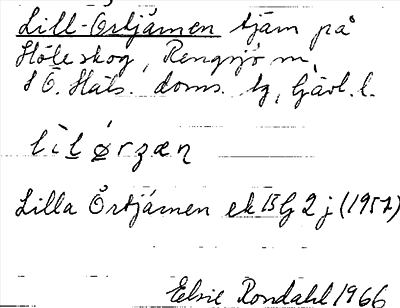 Lill-Örtjärnen tjärn på
Höle skog, Rengsjö sn,
S Ö. Häls. doms. tg, Gävl. l.
lìlørzæn
Lilla Örtjärnen ek 15G 2 j (1957)
Elsie Rondahl 1966